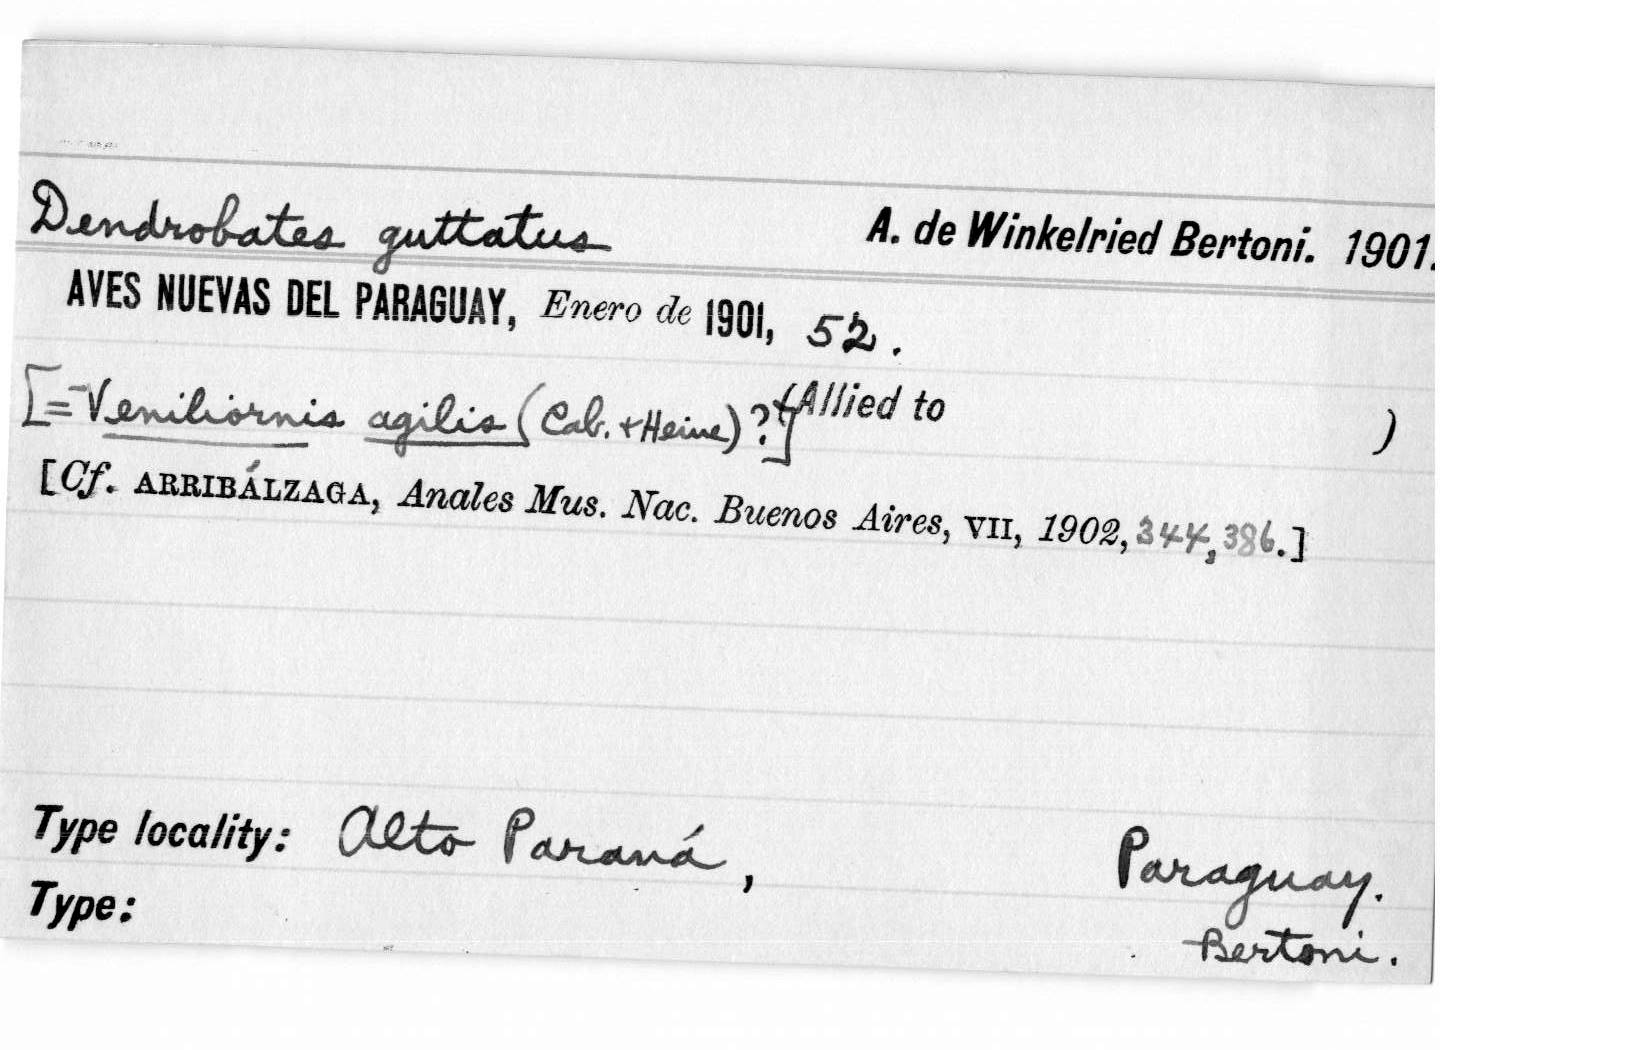 Dendrobates guttatus A. de Winkelried Bertoni. 1901.
AVES NUEVAS DEL PARAGUAY, Enero de 1901, 52.
[=Veniliornis agilis (Cab. + Heine)?] (Allied to )
[Cf. ARRIBÁLZAGA, Anales Mus. Nac. Buenos Aires, VII, 1902, 344, 386.]
Type locality: Alto Paraná, Paraguay.
Type: Bertoni.